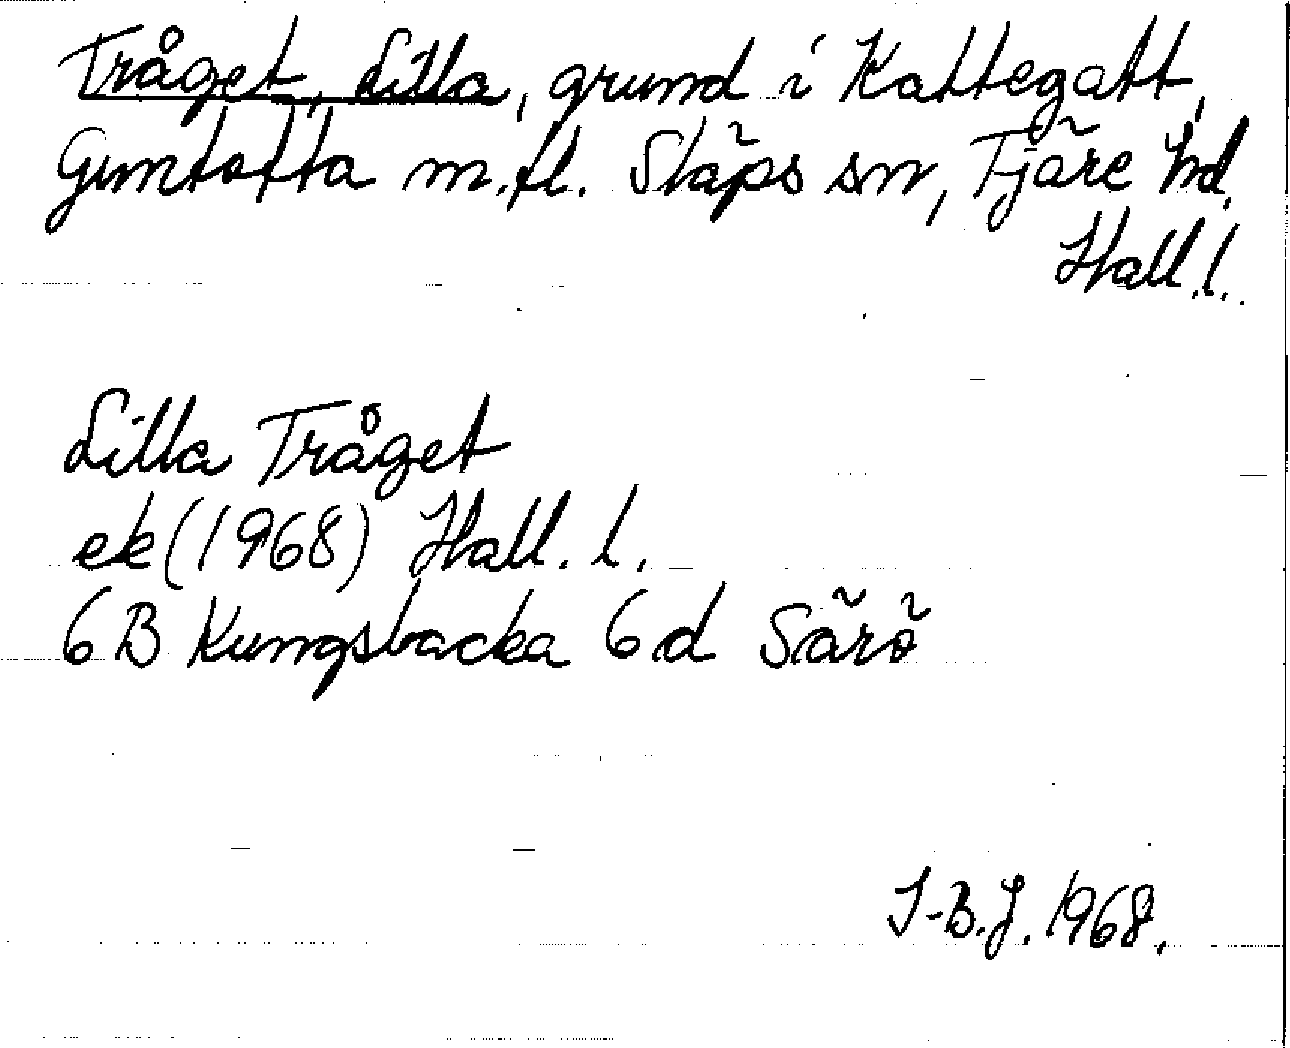 Tråget, Lilla, grund i Kattegatt,
Guntofta m.fl. Släps sn, Fjäre hd,
Hall.l.
Lilla Tråget
ek (1968) Hall. l.
6B Kungsbacka 6d Särö
I-B.J. 1968.